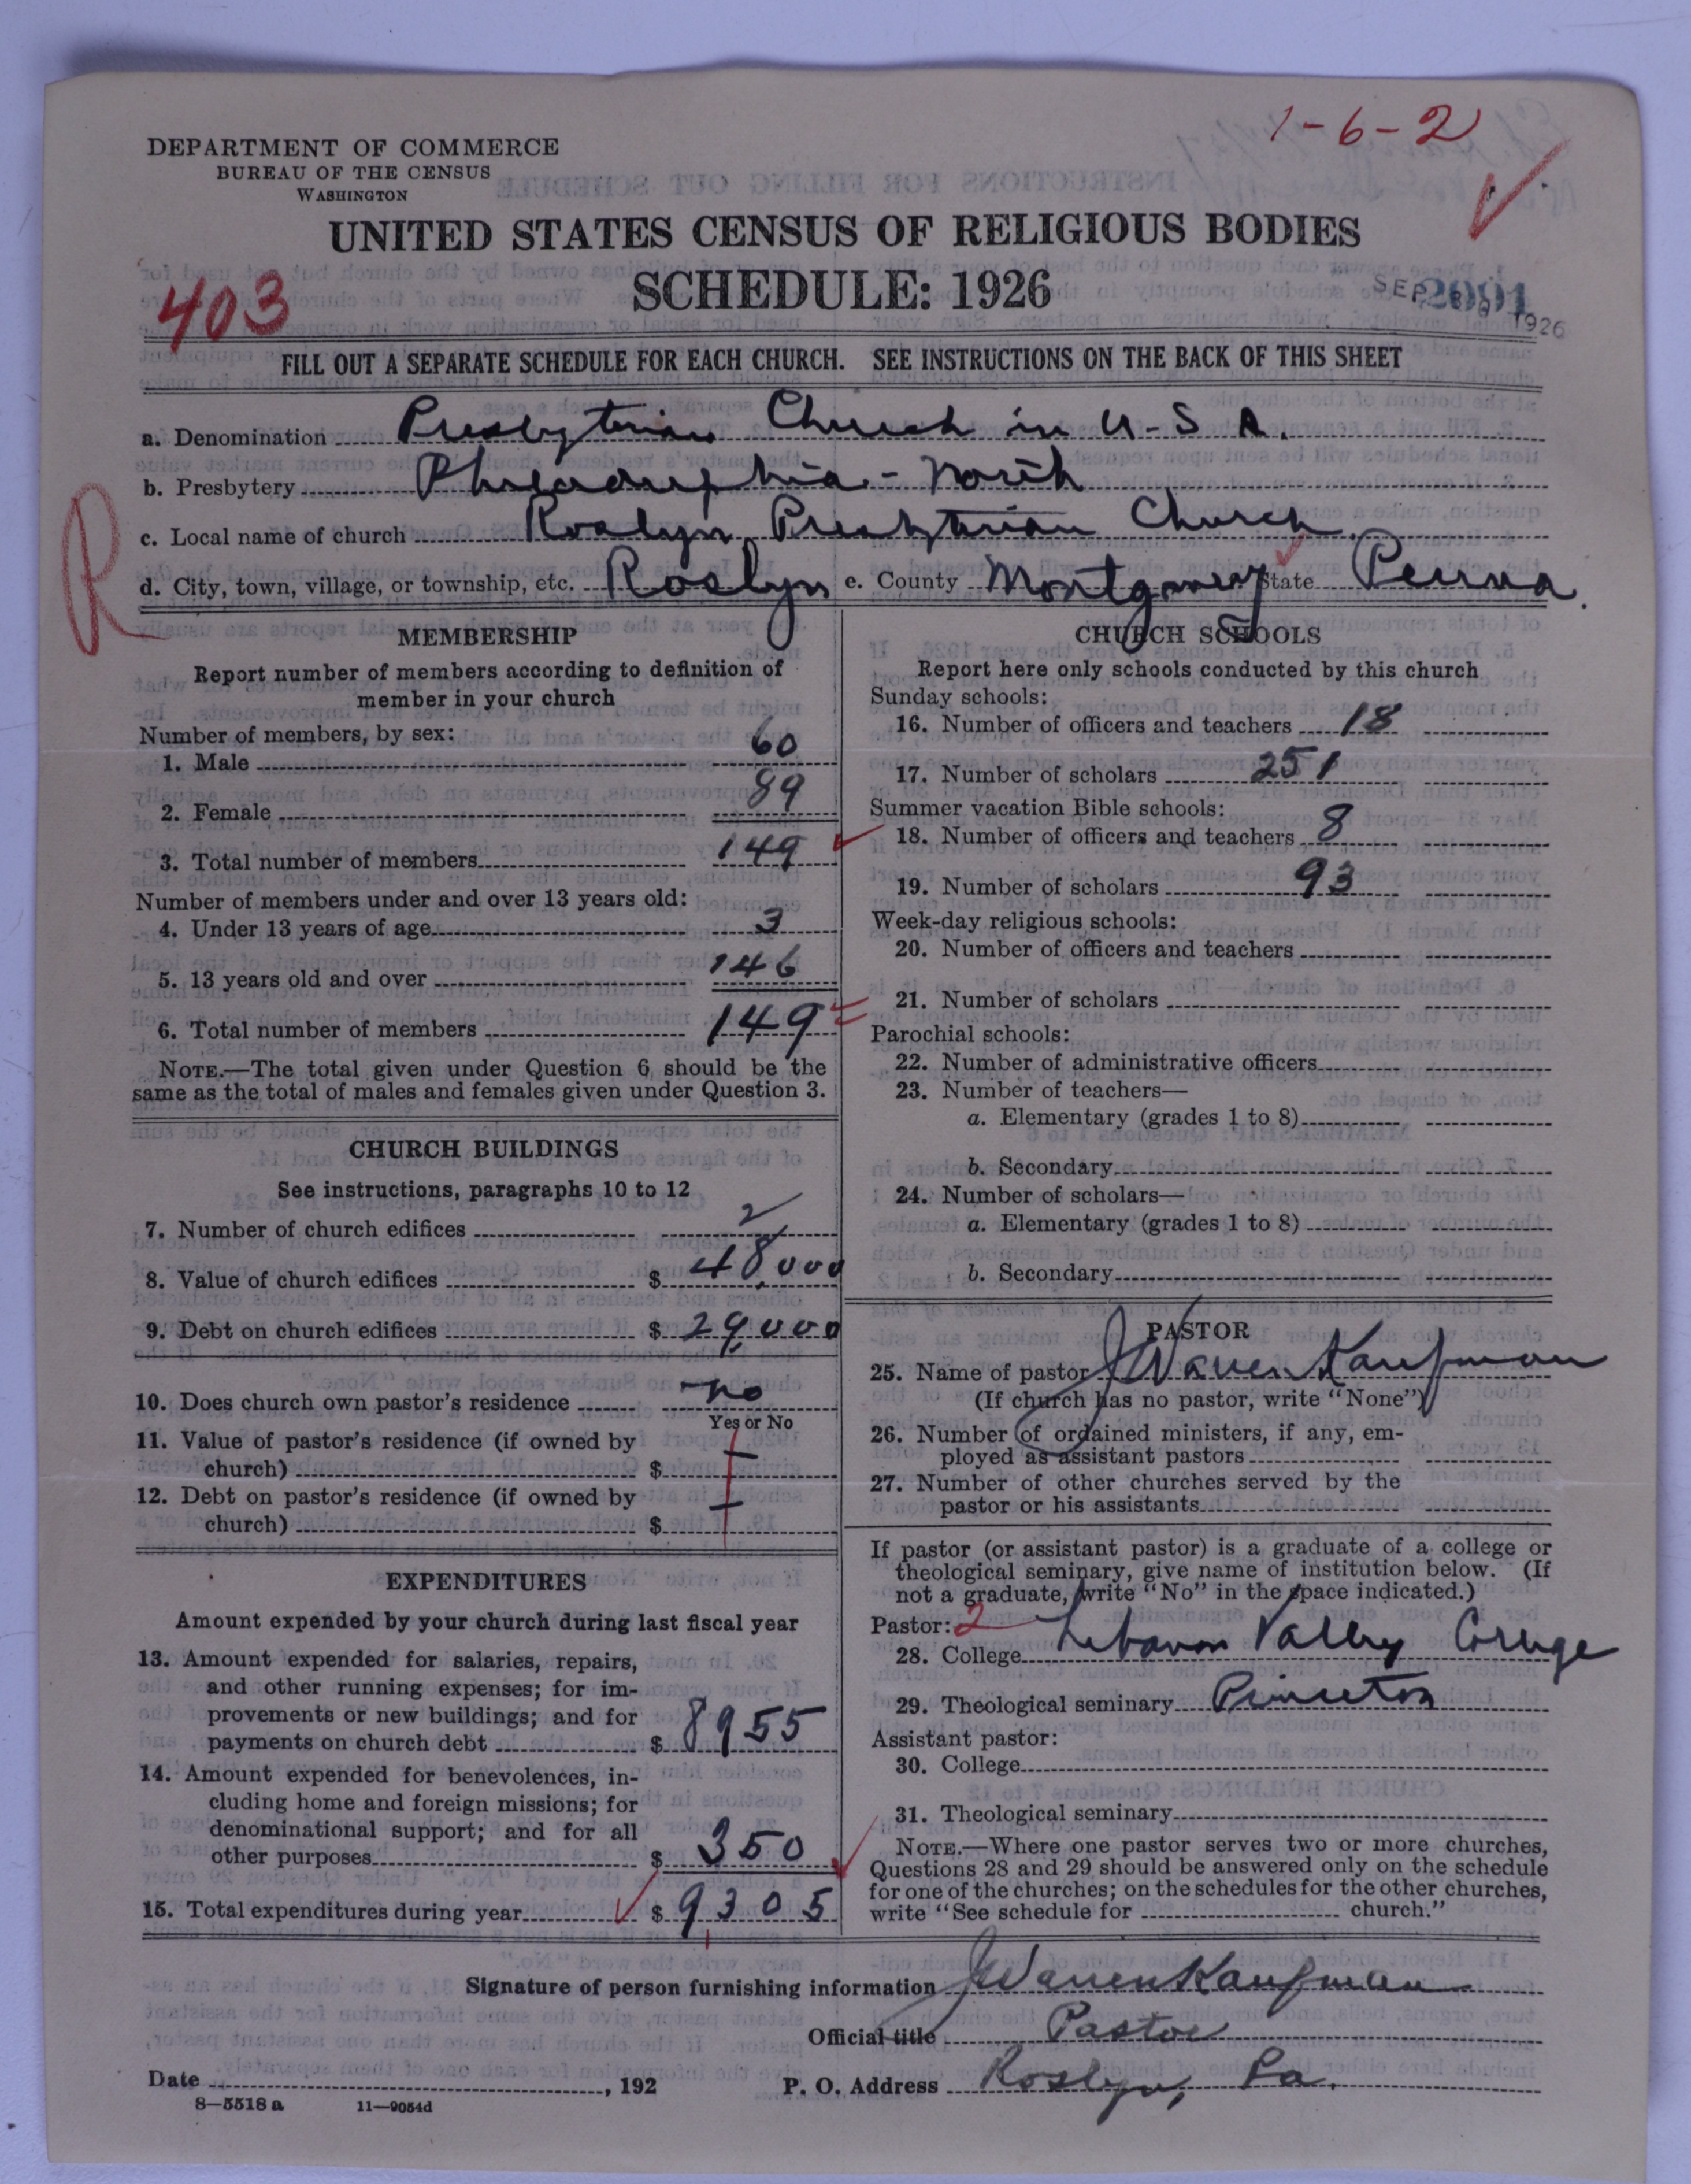 1-6-2
DEPARTMENT OF COMMERCE
BUREAU OF THE CENSUS
WASHINGTON
UNITED STATES CENSUS OF RELIGIOUS BODIES
SCHEDULE: 1926
403
SEP 1926
2091
FILL OUT A SEPARATE SCHEDULE FOR EACH CHURCH. SEE INSTRUCTIONS ON THE BACK OF THIS SHEET
a. Denomination Presbyterian Church in U-S A.
b. Presbytery Philadelphia - North
c. Local name of church Roslyn Presbyterian Church
R
d. City, town, village, or township, etc. Roslyn e. County Montgomery State Penna.
MEMBERSHIP
Report number of members according to definition of
member in your church
Number of members, by sex:
1. Male 60
2. Female 89
3. Total number of members 149
Number of members under and over 13 years old:
4. Under 13 years of age 3
5. 13 years old and over 146
6. Total number of members 149
NOTE.—The total given under Question 6 should be the
same as the total of males and females given under Question 3.
CHURCH BUILDINGS
See instructions, paragraphs 10 to 12
7. Number of church edifices 2
8. Value of church edifices $ 48,000
9. Debt on church edifices $ 29,000
10. Does church own pastor's residence no
Yes or No
11. Value of pastor's residence (if owned by
church) $
12. Debt on pastor's residence (if owned by
church) $
EXPENDITURES
Amount expended by your church during last fiscal year
13. Amount expended for salaries, repairs,
and other running expenses; for im-
provements or new buildings; and for
payments on church debt $ 8955
14. Amount expended for benevolences, in-
cluding home and foreign missions; for
denominational support; and for all
other purposes $ 350
15. Total expenditures during year $ 9305
CHURCH SCHOOLS
Report here only schools conducted by this church
Sunday schools:
16. Number of officers and teachers 18
17. Number of scholars 251
Summer vacation Bible schools:
18. Number of officers and teachers 8
19. Number of scholars 93
Week-day religious schools:
20. Number of officers and teachers
21. Number of scholars
Parochial schools:
22. Number of administrative officers
23. Number of teachers—
a. Elementary (grades 1 to 8)
b. Secondary
24. Number of scholars—
a. Elementary (grades 1 to 8)
b. Secondary
PASTOR
25. Name of pastor J Warren Kaufman
(If church has no pastor, write "None")
26. Number of ordained ministers, if any, em-
ployed as assistant pastors
27. Number of other churches served by the
pastor or his assistants
If pastor (or assistant pastor) is a graduate of a college or
theological seminary, give name of institution below. (If
not a graduate, write "No" in the space indicated.)
Pastor: 2
28. College Lebanon Valley College
29. Theological seminary Princeton
Assistant pastor:
30. College
31. Theological seminary
NOTE.—Where one pastor serves two or more churches,
Questions 28 and 29 should be answered only on the schedule
for one of the churches; on the schedules for the other churches,
write "See schedule for church."
Signature of person furnishing information J Warren Kaufman
Official title Pastor
Date , 192 P. O. Address Roslyn, Pa.
8—5518 a 11—9054d